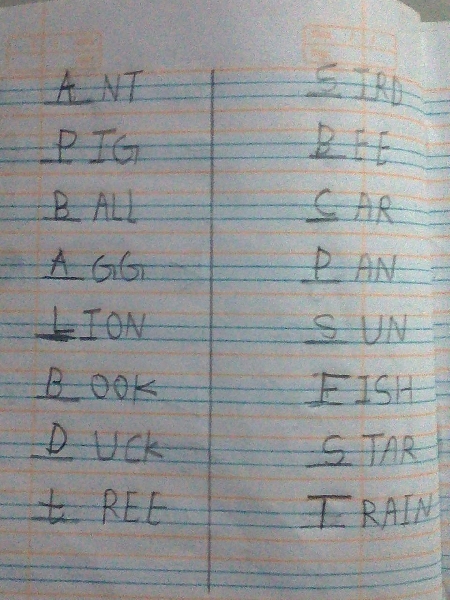 A NT
PIG
B ALL
A GG
LION
B OOK
D UCK
t REE
S IRD
B EE
C AR
P AN
S UN
FISH
S TAR
T RAIN